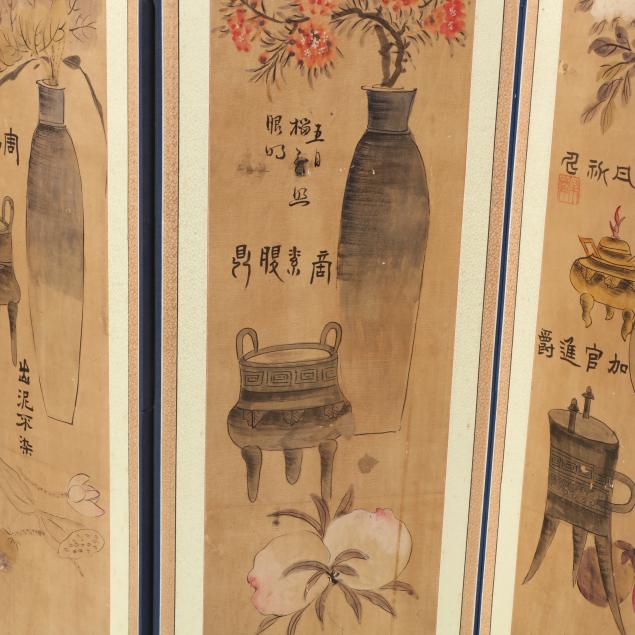 加官進爵
五月
榴花照
眼明
商素腹鼎
出泥不染